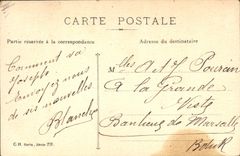 CARTE POSTALE
Partie réservée à la correspondance
Adresse du destinataire
Comment va
Joseph
Envoyez nous
de ses nouvelles
Blanche
Mlles A et J
à la Grande
Banlieue de Marseille